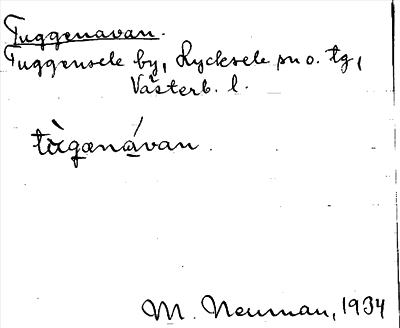 Tuggenavan.
Tuggensele by, Lycksele sn o. tg,
Västerb. l.
tùgænávan.
M. Neuman, 1934